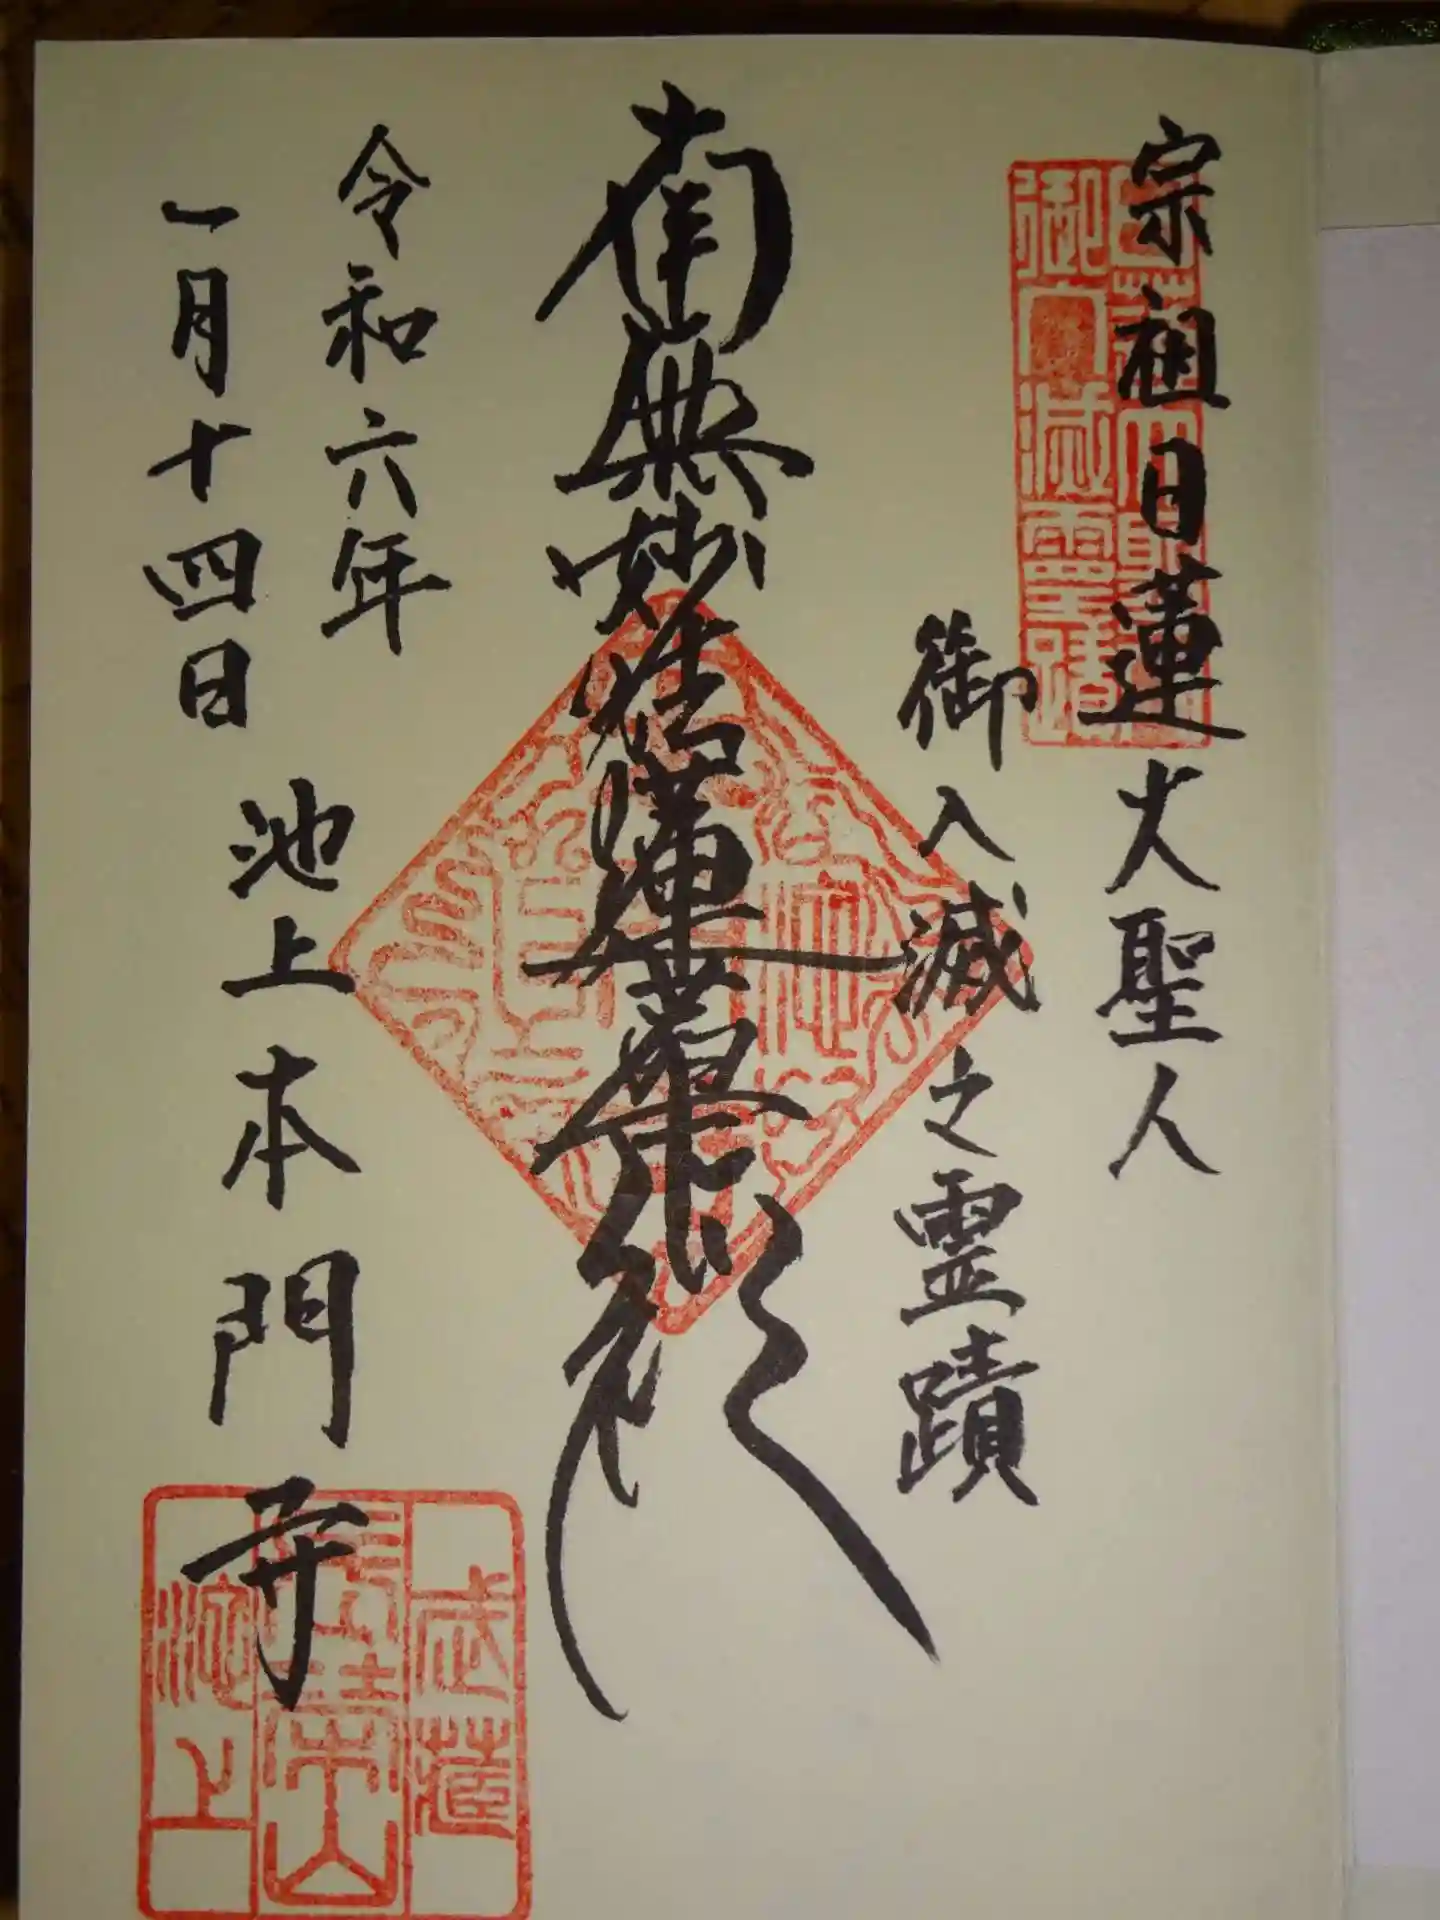 宗祖日蓮大聖人
御入滅之霊蹟
南無妙法蓮華経
令和六年
一月十四日
池上本門寺
御入滅霊蹟
武蔵
長栄山
池上